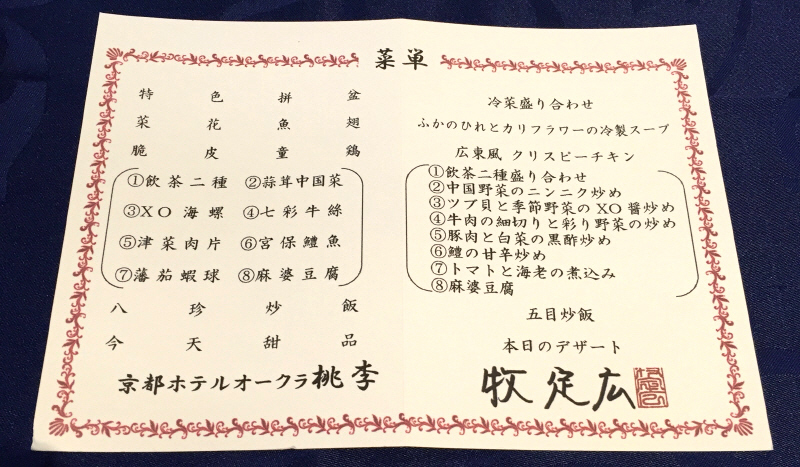 菜単
特色拼盆
菜花魚翅
脆皮童鶏
①飲茶二種 ②蒜茸中国菜
③XO海螺 ④七彩牛絲
⑤津菜肉片 ⑥宮保鱧魚
⑦蕃茄蝦球 ⑧麻婆豆腐
八珍炒飯
今天甜品
京都ホテルオークラ桃李
冷菜盛り合わせ
ふかのひれとカリフラワーの冷製スープ
広東風 クリスピーチキン
①飲茶二種盛り合わせ
②中国野菜のニンニク炒め
③ツブ貝と季節野菜のXO醤炒め
④牛肉の細切りと彩り野菜の炒め
⑤豚肉と白菜の黒酢炒め
⑥鱧の甘辛炒め
⑦トマトと海老の煮込み
⑧麻婆豆腐
五目炒飯
本日のデザート
牧定広